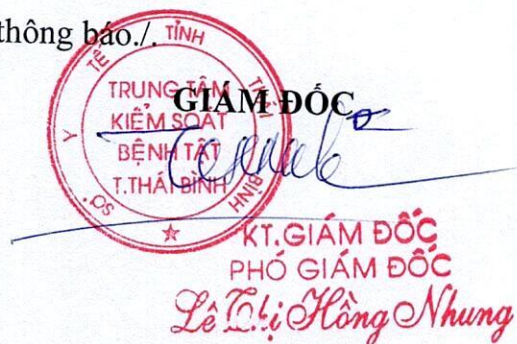 thông báo./.
GIÁM ĐỐC
SỞ Y TẾ TỈNH THÁI BÌNH
TRUNG TÂM
KIỂM SOÁT
BỆNH TẬT
T.THÁI BÌNH
KT.GIÁM ĐỐC
PHÓ GIÁM ĐỐC
Lê Thị Hồng Nhung